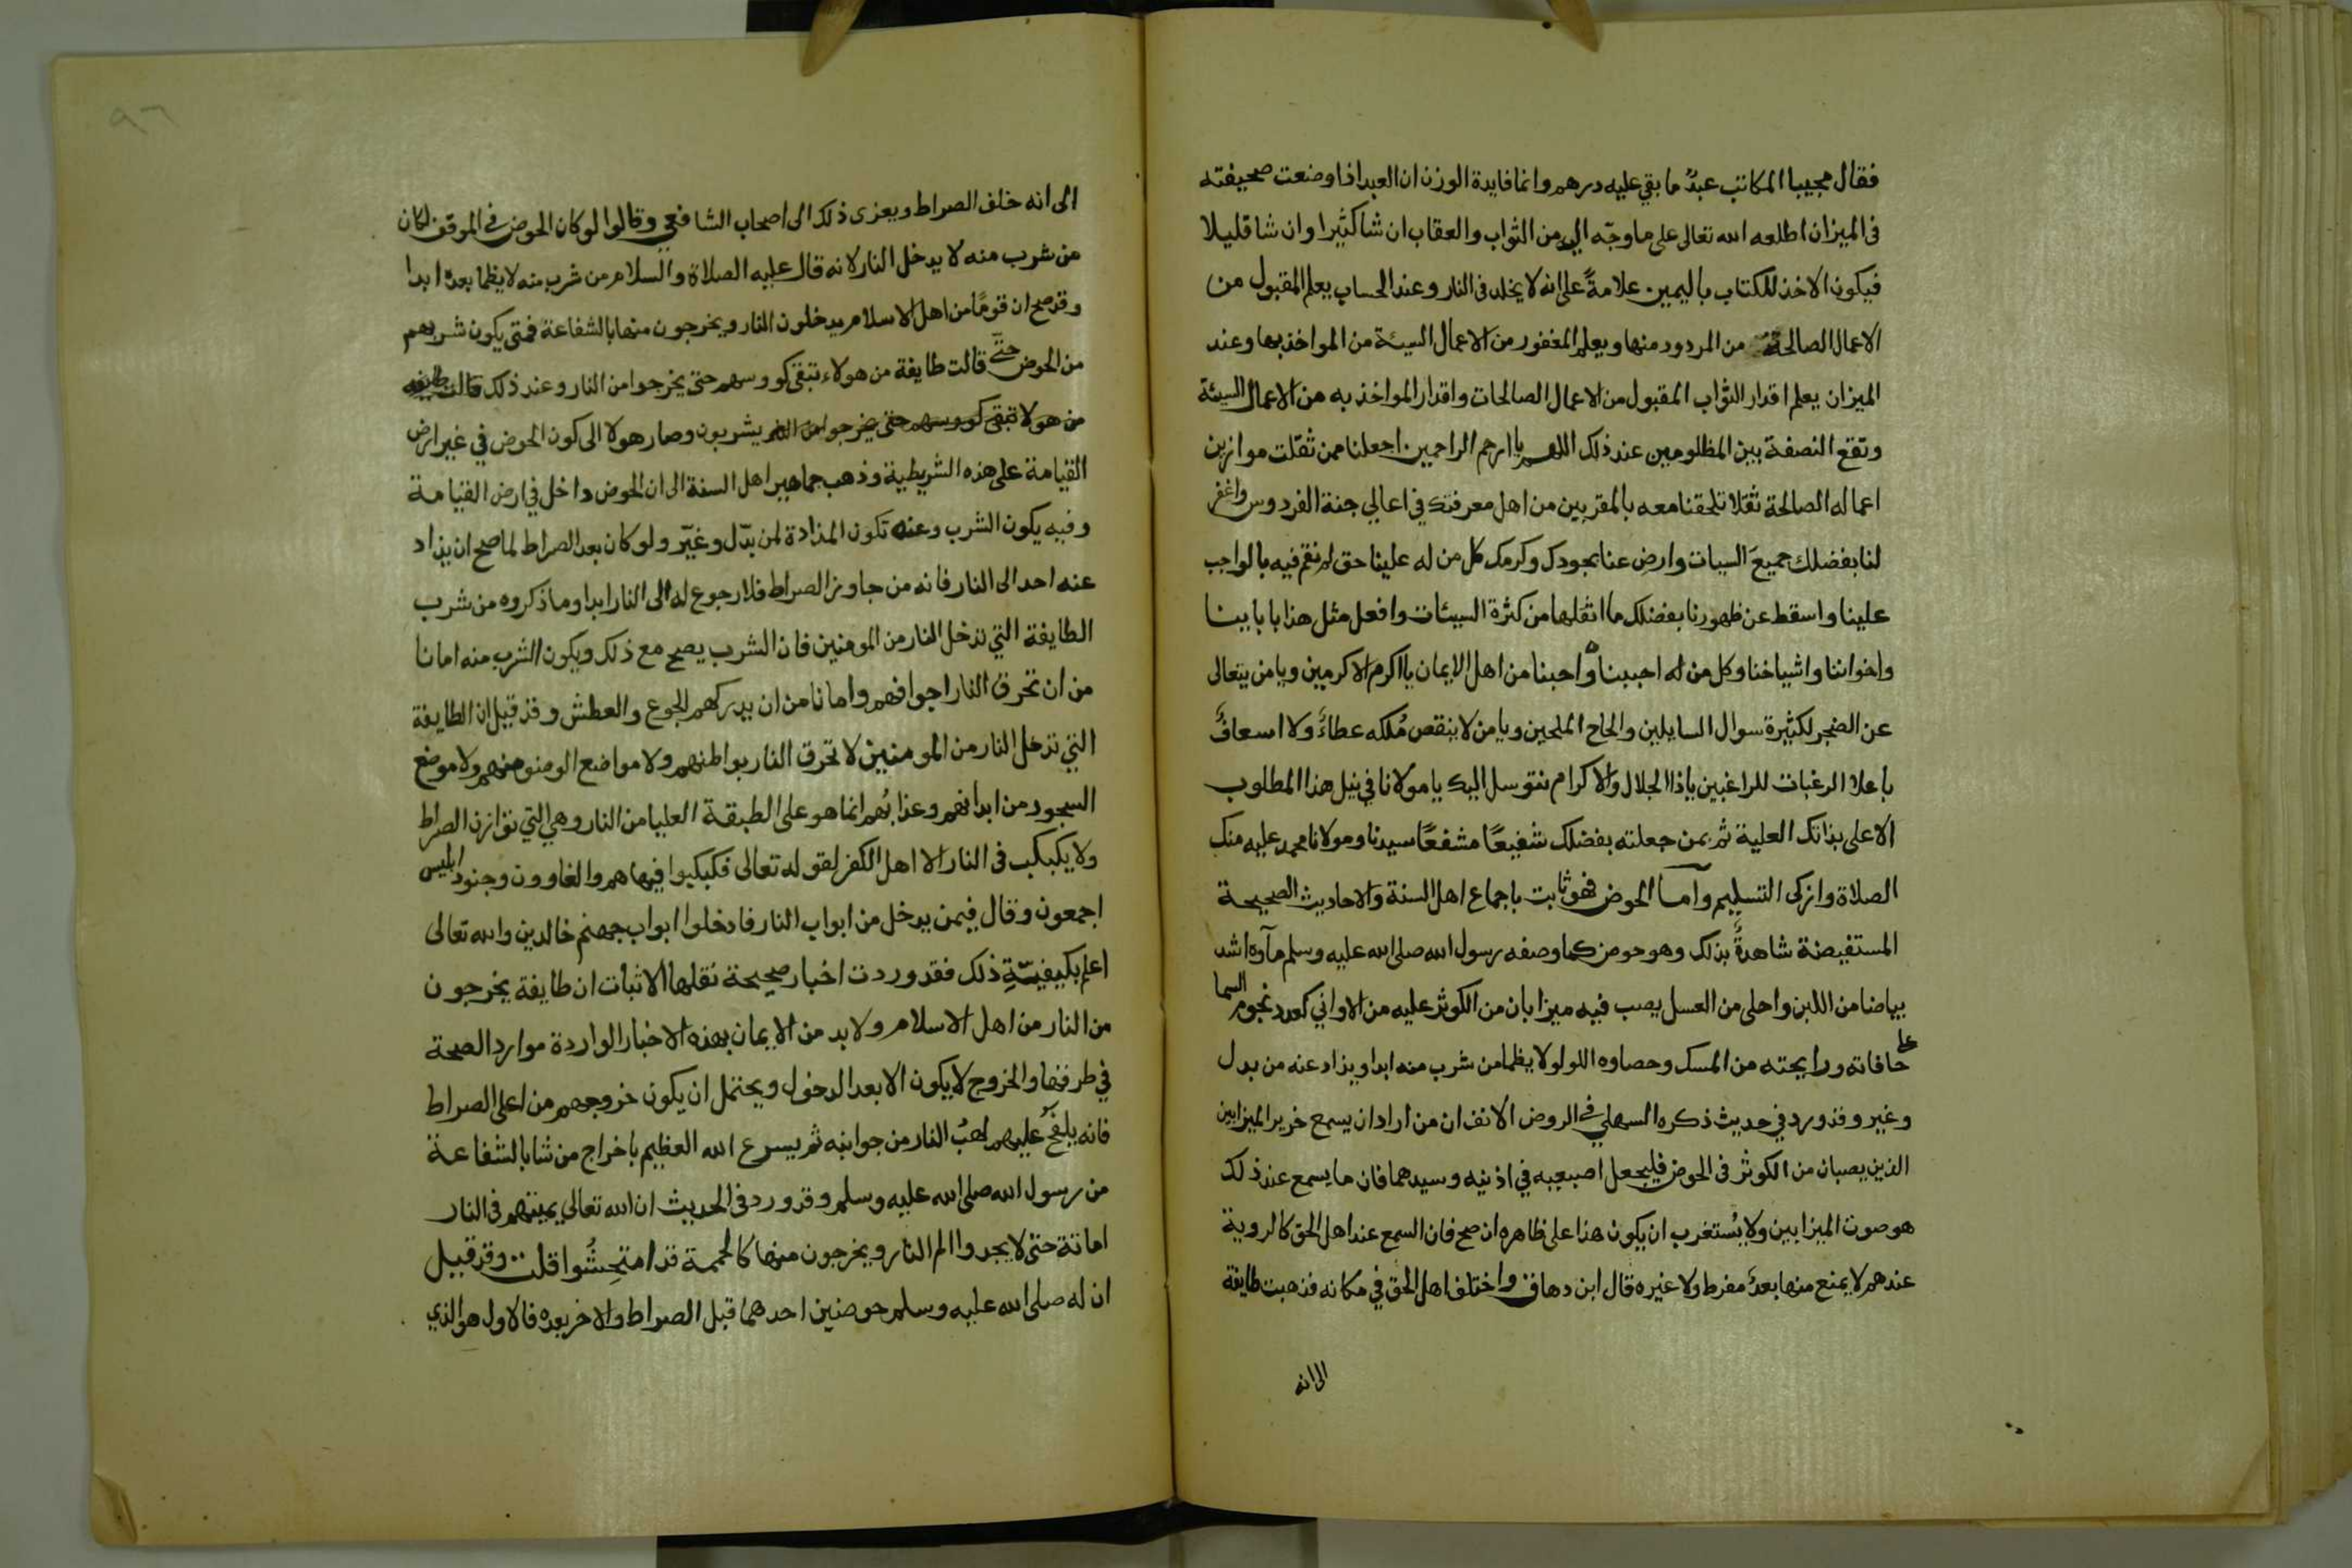 فقال مجيبا المكاتب عبدٌ ما بقي عليه درهم وانما فايدة الوزن ان العبد اذا وضعت صحيفته
فى الميزان اطلعه الله تعالى على ما وجّه اليه من الثواب والعقاب ان شا كثيرا وان شا قليلا
فيكون الاخذ للكتاب باليمين علامةً على انه لا يخلد فى النار وعند الحساب يعلم المقبول من
الاعمال الصالحة من المردود منها ويعلم المغفور من الاعمال السيئة من المواخذ بها وعند
الميزان يعلم اقدار الثواب المقبول من الاعمال الصالحات واقدار المواخذ به من الاعمال السيئة
وتقع النصفة بين المظلومين عند ذلك اللهم يا ارحم الراحمين اجعلنا ممن ثقلت موازين
اعماله الصالحة ثقلا تلحقنا معه بالمقربين من اهل معرفتك في اعالي جنة الفردوس واغفر
لنا بفضلك جميعَ السيات وارض عنا بجودك وكرمك كل من له علينا حق لم نقم فيه بالواجب
علينا واسقط عن ظهورنا بفضلك ما اثقلها من كثرة السيئات وافعل مثل هذا بابايينا
واخواننا واشياخنا وكل من له احببناه واحبنا من اهل الايمان يا اكرم الاكرمين ويا من يتعالى
عن الضجر لكثيرة سوال السايلين والحاح الملحين ويا من لا ينقص مُلكه عطاءٌ ولا اسعافٌ
باعلا الرغبات للراغبين ياذا الجلال والاكرام نتوسل اليك يا مولانا في نيل هذا المطلوب
الاعلى بذاتك العلية ثم بمن جعلته بفضلك شفيعًا مشفعًا سيدنا ومولانا محمد عليه منك
الصلاة وازكى التسليم وآما الحوض فهو ثابت باجماع اهل السنة والاحاديث الصحيحة
المستفيضة شاهدةٌ بذلك وهو حوض كما وصفه رسول الله صلى الله عليه وسلم مآوه اشد
بياضا من اللبن واحلى من العسل يصب فيه ميزابان من الكوثر عليه من الاواني كعدد نجوم السما
على حافاته ورايحته من المسك وحصاوه اللولو لا يظما من شرب منه ابدا ويذاد عنه من بدل
وغير وقد ورد في حديث ذكره السهلي فى الروض الانف ان من اراد ان يسمع خرير الميزابين
الذين يصبان من الكوثر فى الحوض فليجعل اصبعيه في اذنيه وسيدهما فان ما يسمع عند ذلك
هو صوت الميزابين ولا يُستغرب ان يكون هذا على ظاهره ان صح فان السمع عند اهل الحق كالروية
عندهم لا يمنع منها بعدٌ مفرط ولا غيره قال ابن دهاق واختلف اهل الحق في مكانه فذهبت طايفة
الى انه
٩٦
الى انه خلف الصراط ويعزى ذلك الى اصحاب الشافعي وقالوا لو كان الحوض فى الموقف لكان
من شرب منه لا يدخل النار لانه قال عليه الصلاة والسلام من شرب منه لا يظما بعده ابدا
وقد صح ان قومًا من اهل الاسلام يدخلون النار ويخرجون منها بالشفاعة فمتى يكون شربهم
من الحوض حتّى قالت طايفة من هولاء تبقى كووسهم حتى يخرجوا من النار وعند ذلك قالت طايفه
من هولا تبقى كووسهم حتى يخرجوا من النار يشربون وصار هولا الى كون الحوض في غير ارض
القيامة على هذه الشريطية وذهب جماهير اهل السنة الى ان الحوض داخل في ارض القيامة
وفيه يكون الشرب وعنه تكون المذادة لمن بدّل وغيّر ولو كان بعد الصراط لما صح ان يذاد
عنه احد الى النار فانه من جاوز الصراط فلا رجوع له الى النار ابدا وما ذكروه من شرب
الطايفة التي تدخل النار من المومنين فان الشرب يصح مع ذلك ويكون الشرب منه امانا
من ان تحرق النار اجوافهم وامانا من ان يدركهم الجوع والعطش وقد قيل ان الطايفة
التي تدخل النار من المومنين لا تحرق النار بواطنهم ولا مواضع الوضو منهم ولا موضع
السجود من ابدانهم وعذابُهم انما هو على الطبقة العليا من النار وهي التي توازن الصراط
ولا يكبكب فى النار الا اهل الكفر لقوله تعالى فكبكبوا فيها هم والغاوون وجنود ابليس
اجمعون وقال فيمن يدخل من ابواب النار فادخلوا ابواب جهنم خالدين والله تعالى
اعلم بكيفيّةِ ذلك فقد وردت اخبار صحيحة نقلها الاثبات ان طايفة يخرجون
من النار من اهل الاسلام ولا بد من الايمان بهذه الاخبار الواردة موارد الصحة
في طرقها والخروج لا يكون الا بعد الدخول ويحتمل ان يكون خروجهم من اعلى الصراط
فانه يلفحُ عليهم لهبُ النار من جوانبه ثم يسرع الله العظيم باخراج من شا بالشفاعة
من رسول الله صلى الله عليه وسلم وقد ورد فى الحديث ان الله تعالي يميتهم فى النار
اماتة حتى لا يجدوا الم النار ويخرجون منها كالحممة قد امتحِشُوا قلت وقد قيل
ان له صلى الله عليه وسلم حوضين احدهما قبل الصراط والاخر بعده فالاول هو الذي